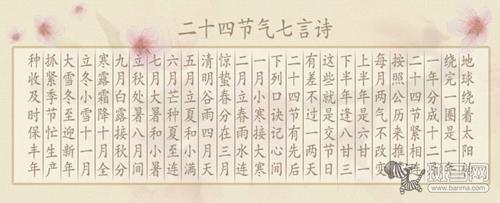 二十四节气七言诗
地球绕着太阳转
绕完一圈是一年
一年分成十二月
二十四节紧相连
按照公历来推算
每月两气不改变
上半年是六廿一
下半年逢八廿三
这些就是交节日
有差不过一两天
二十四节有先后
下列口诀记心间
一月小寒接大寒
二月立春雨水连
惊蛰春分在三月
清明谷雨四月天
五月立夏和小满
六月芒种夏至连
七月大暑和小暑
立秋处暑八月间
九月白露接秋分
寒露霜降十月全
立冬小雪十一月
大雪冬至迎新年
抓紧季节忙生产
种收及时保丰年
www.banma.com